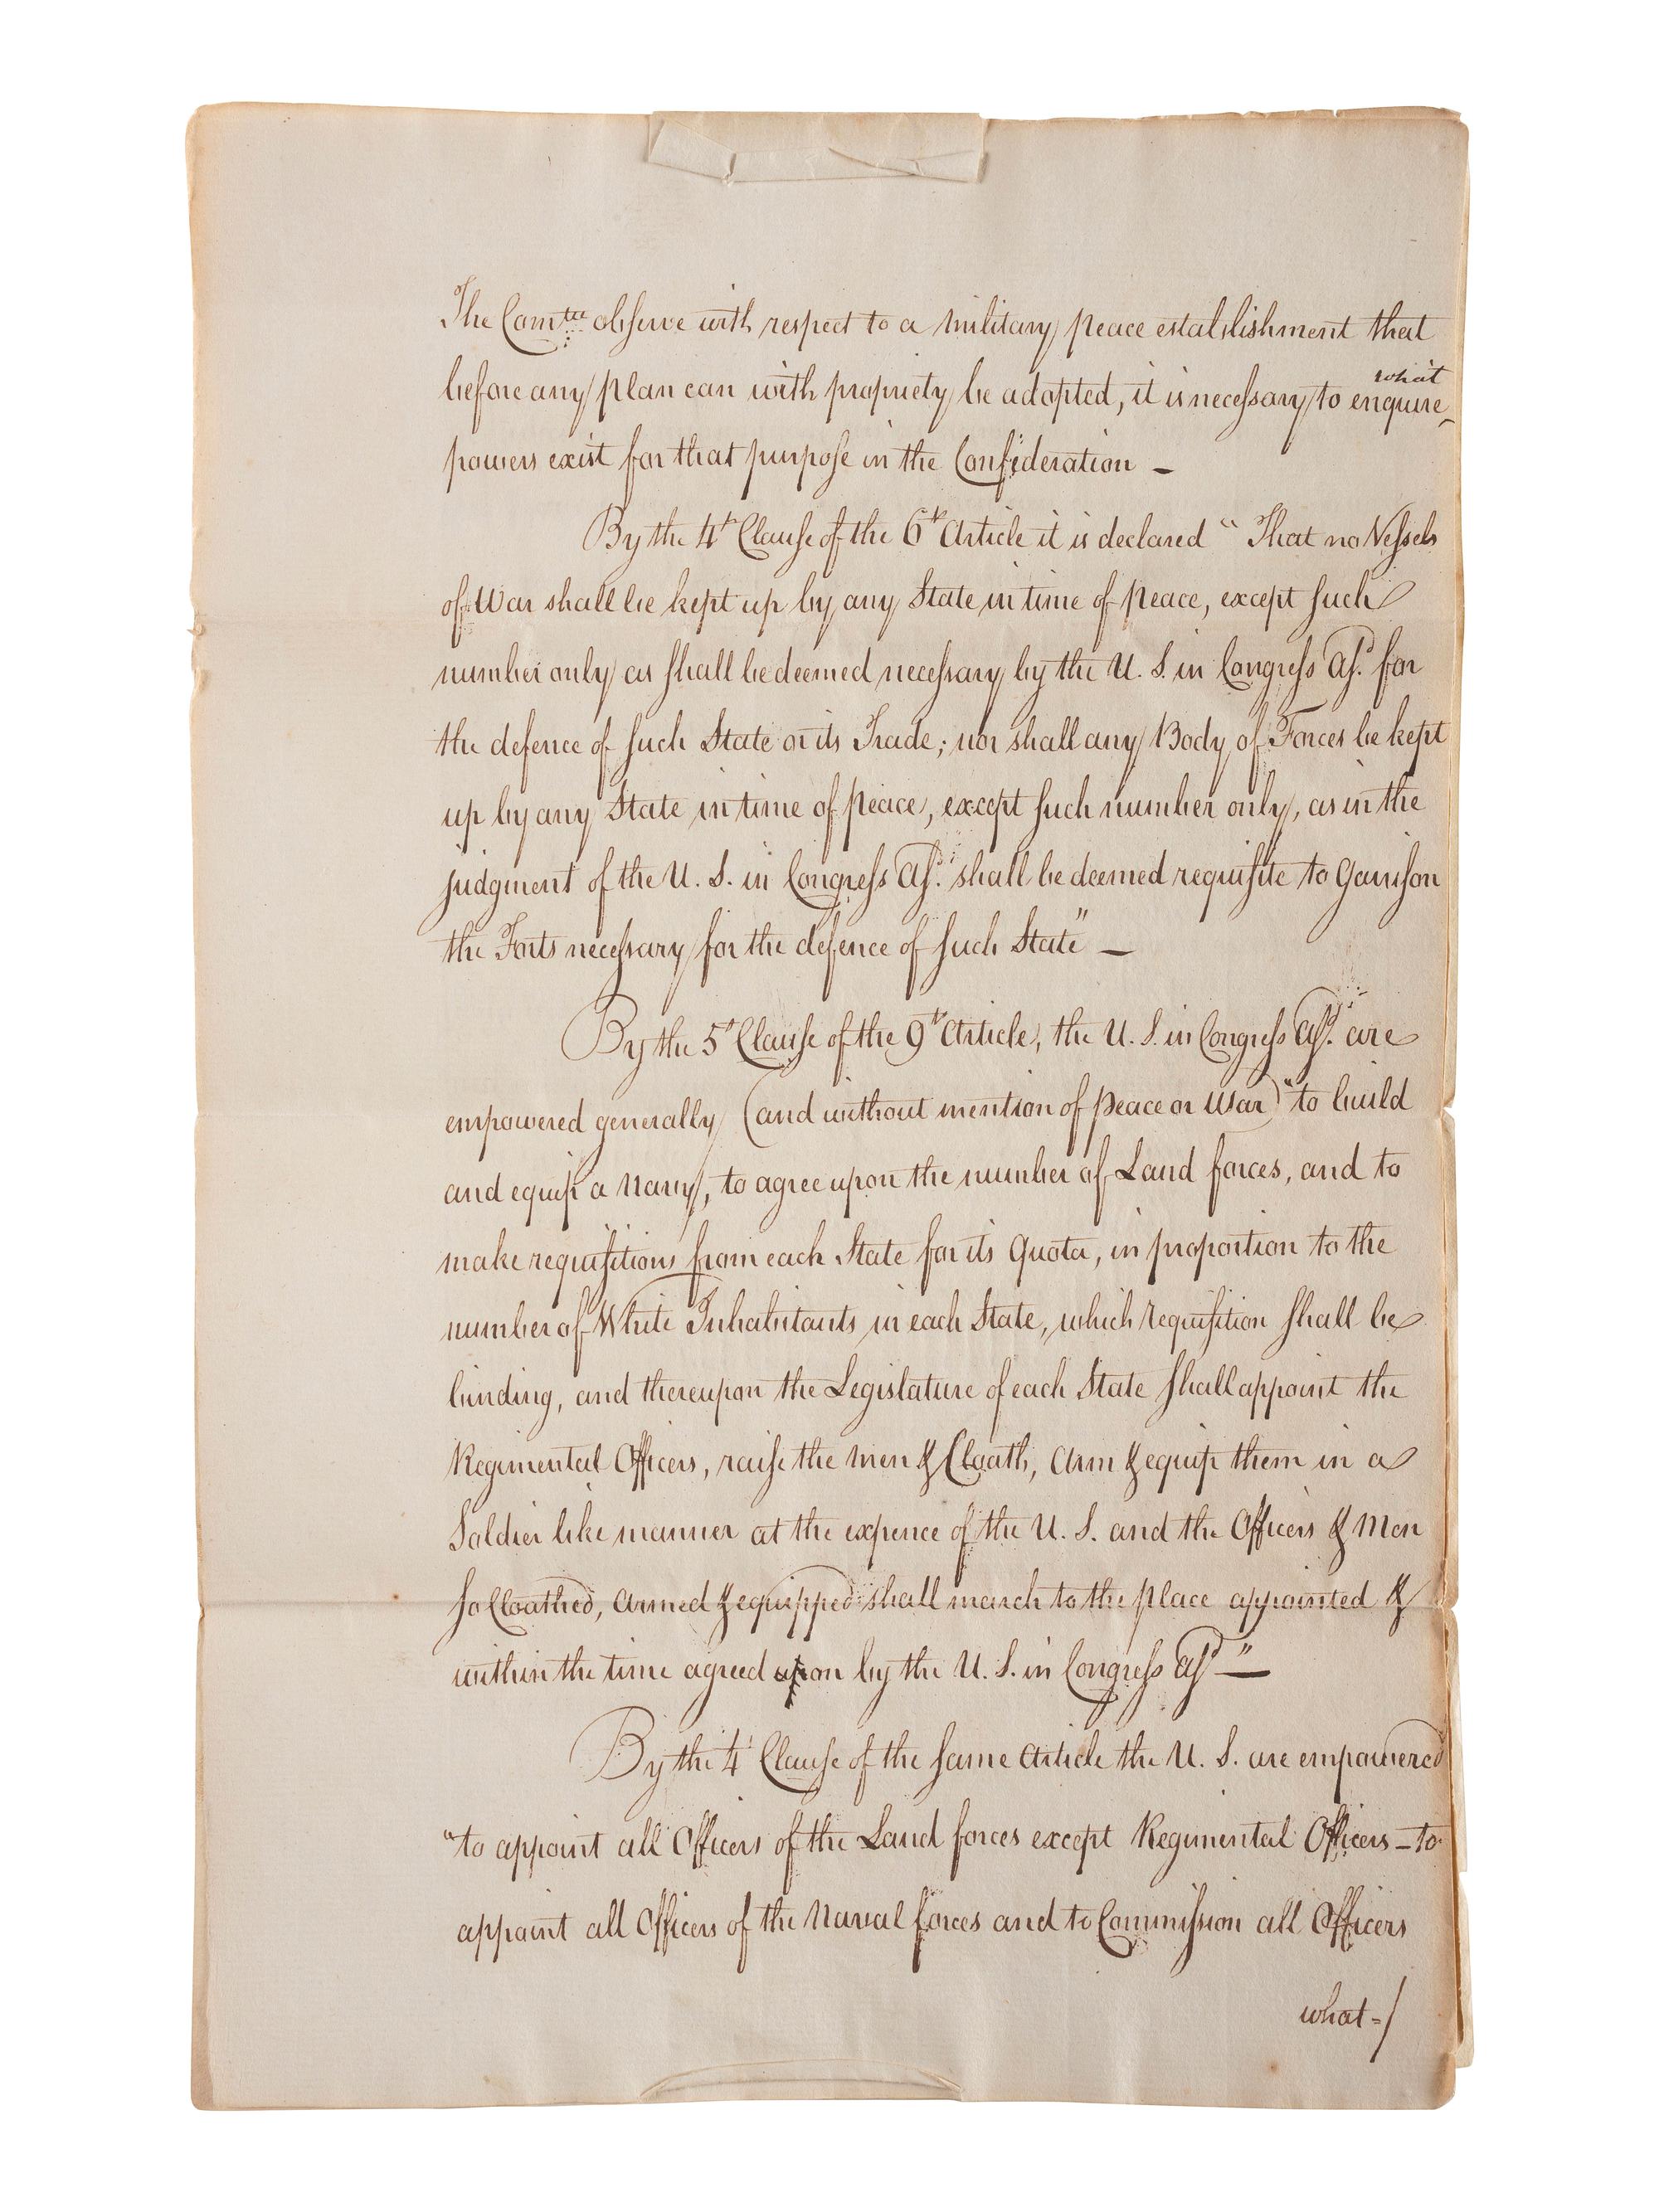 The Comtee observe with respect to a military peace establishment that
before any plan can with propriety be adopted, it is necessary to enquire what
powers exist for that purpose in the Confideration —
By the 4th Clause of the 6th Article it is declared "That no Vessels
of War shall be kept up by any State in time of peace, except such
number only as shall be deemed necessary by the U. S. in Congress Assd. for
the defence of such State or its Trade; nor shall any Body of Forces be kept
up by any State in time of peace, except such number only, as in the
judgment of the U. S. in Congress Assd. shall be deemed requisite to Garrison
the Forts necessary for the defence of such State" —
By the 5th Clause of the 9th Article, the U. S. in Congress Assd. are
empowered generally (and without mention of peace or War) "to build
and equip a Navy, to agree upon the number of Land forces, and to
make requisitions from each State for its Quota, in proportion to the
number of White Inhabitants in each State, which requisition shall be
binding, and thereupon the Legislature of each State shall appoint the
Regimental Officers, raise the men & Cloath, Arm & equip them in a
Soldier like manner at the expence of the U. S. and the Officers & Men
so Cloathed, Armed & equipped shall march to the place appointed &
within the time agreed upon by the U. S. in Congress Assd" —
By the 4th Clause of the same Article the U. S. are empowered
"to appoint all Officers of the Land forces except Regimental Officers — to
appoint all Officers of the Naval forces and to Commission all Officers
what=/